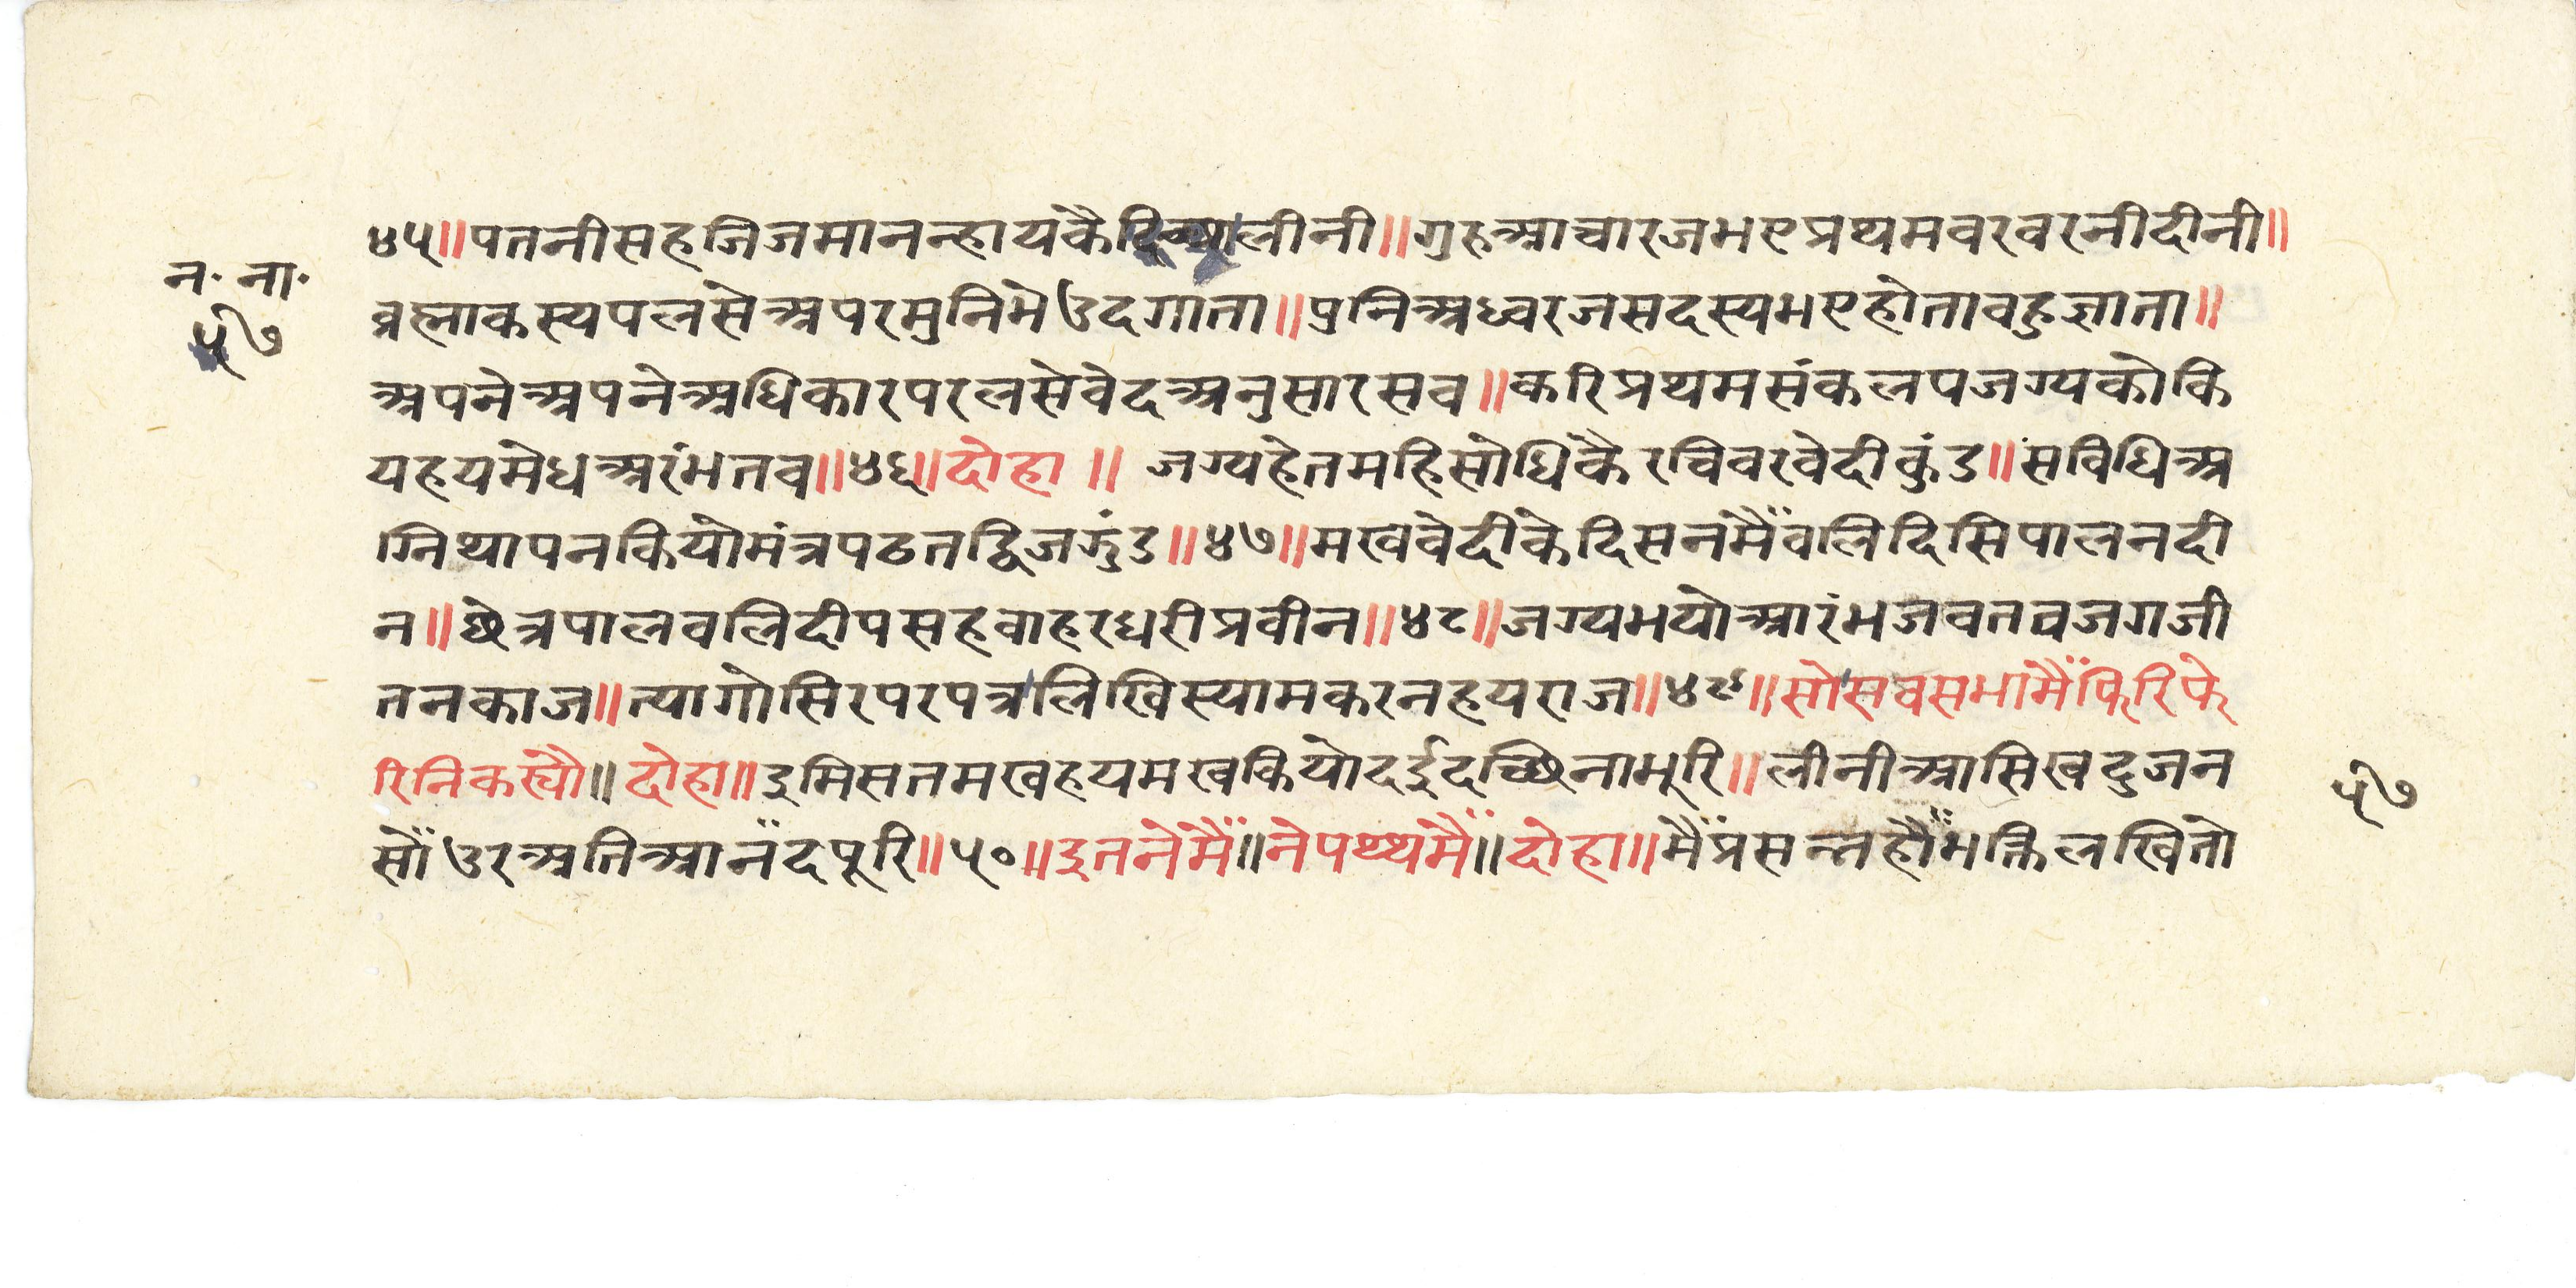 ४५॥पतनीसहजिजमानन्हायकैदिच्छालीनी॥गुहआचारजभएप्रथमवरवरनीदीनी॥
न॰ ना॰
५७
ब्रह्माकस्यपलसेअपरमुनिभेउदगाता॥प्रनिअध्वरजसदस्यभएहोतावहुज्ञाता॥
अपनेअपनेअधिकारपरलसेवेदअनुसारसव॥करिप्रथमसंकलपजग्यकोकि
यहयमेधअरंभतव॥४६॥दोहा॥ जग्यहेतमहिसोधिकैरचिवरवेदीकुंड॥सविधिअ
ग्निथापनकियोमंत्रपठतद्विजझुंड॥४७॥मखवेदीकेदिसनमैंवलिदिसिपालनदी
न॥छेत्रपालवलिदीपसहवाहरधरीप्रवीन॥४८॥जग्यभयोआरंभजवतवजगजी
तनकाज॥त्यागोसिरपरपत्रलिखिस्यामकरनहयराज॥४९॥सोसवसभामैंफिरिफे
रिनिकस्यौ॥दोहा॥इमिसतमखहयमखकियोदईदच्छिनाभूरि॥लीनीआसिखदुजन
५७
सोंउरअतिआनँदपूरि॥५०॥इतनेमैं॥नेपथ्थमैं॥दोहा॥मैंप्रसन्नहौंभक्तिलखितो